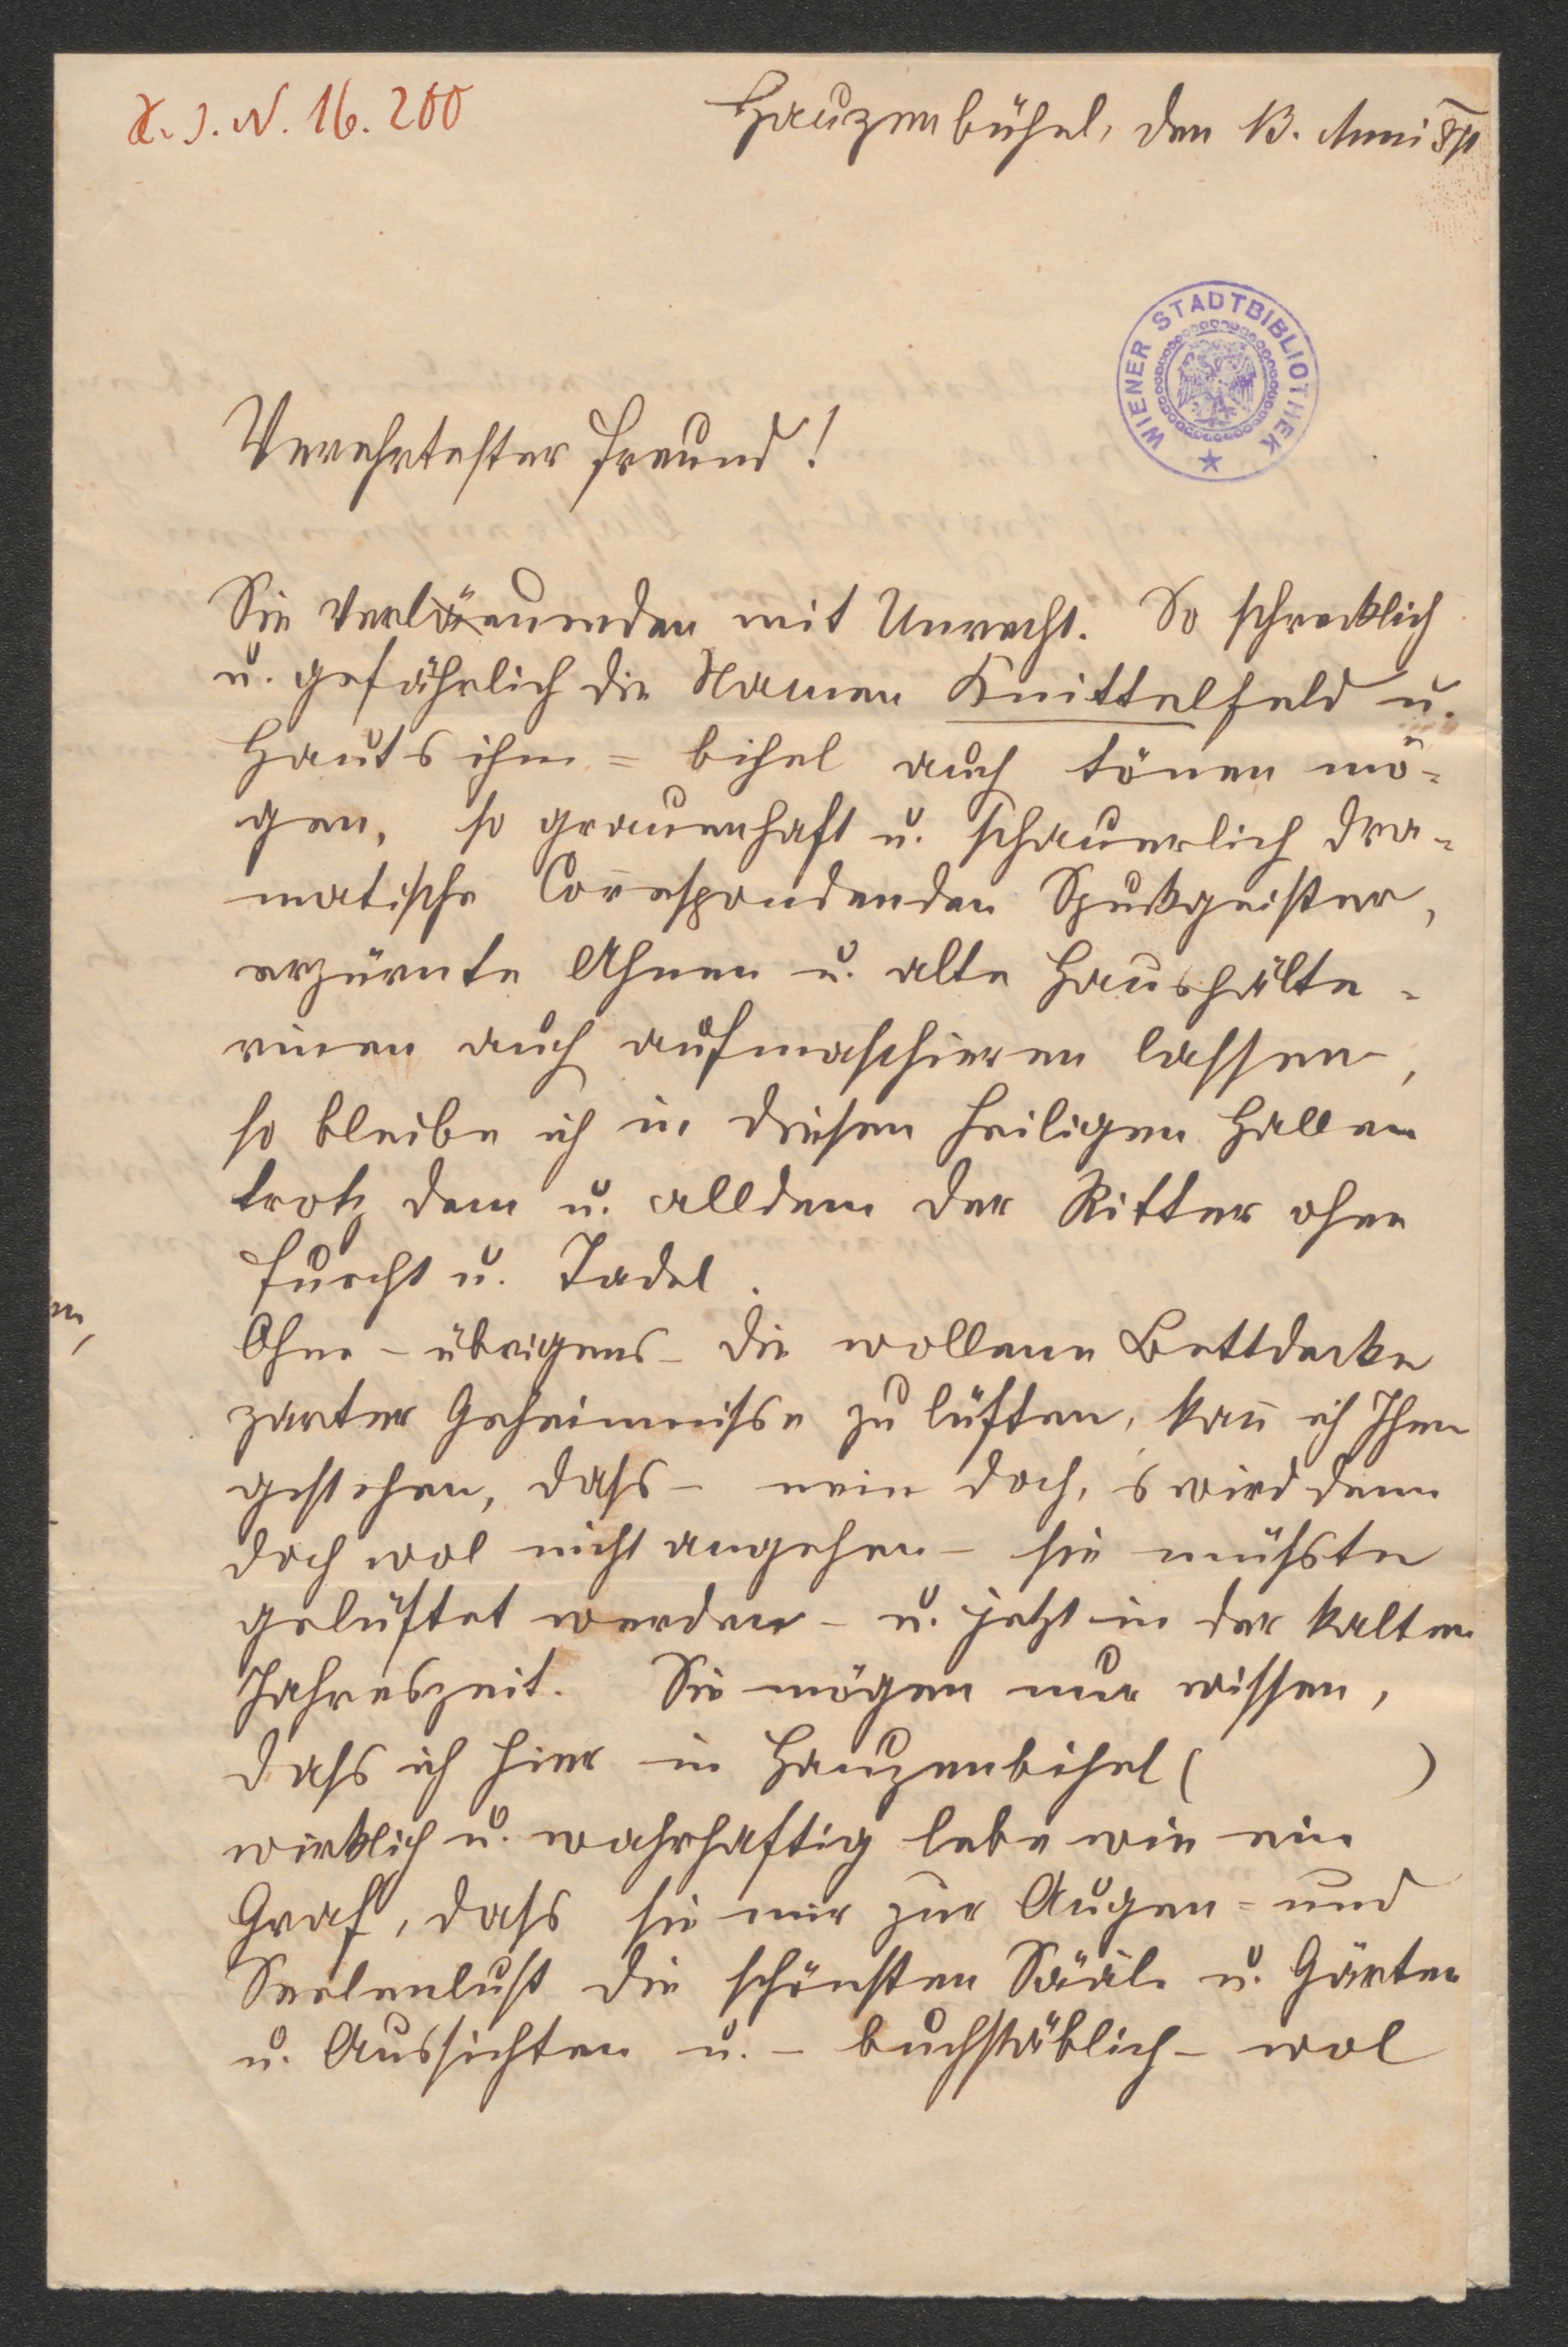 H. I. N. 16.200
Hauzenbühel, den 13. Juni 87
WIENER STADTBIBLIOTHEK
Verehrtester Freund!
Sie Verläumden mit Unrecht. So schrecklich
u. gefährlich die Namen Knittelfeld u.
Hauts ihm = bihel auch tönen mö-
gen, so grauenhaft u. schauerlich dra-
matische Corespondenden Spukgeister,
erzürnte Ahnen u. alte Haushälte-
rinen auch aufmaschieren lassen,
so bleibe ich in diesen heiligen Hallen
trotz dem u. alldem der Ritter ohne
Furcht u. Tadel.
Ohne – übrigens – die wollene Bettdecke
zarter Geheimnisse zu lüften, kan̄ ich Ihnen
gestehen, dass – nein doch, 's wird denn
doch wol nicht angehen – sie müsste
gelüftet werden – u. jetzt in der kalten
Jahreszeit. Sie mögen nur wissen,
dass ich hier in Hauzenbihel ( )
wirklich u. wahrhaftig lebe wie ein
Graf, dass sie mir zur Augen- und
Seelenlust die schönsten Sääle u. Gärten
u. Aussichten u. – buchstäblich – wol